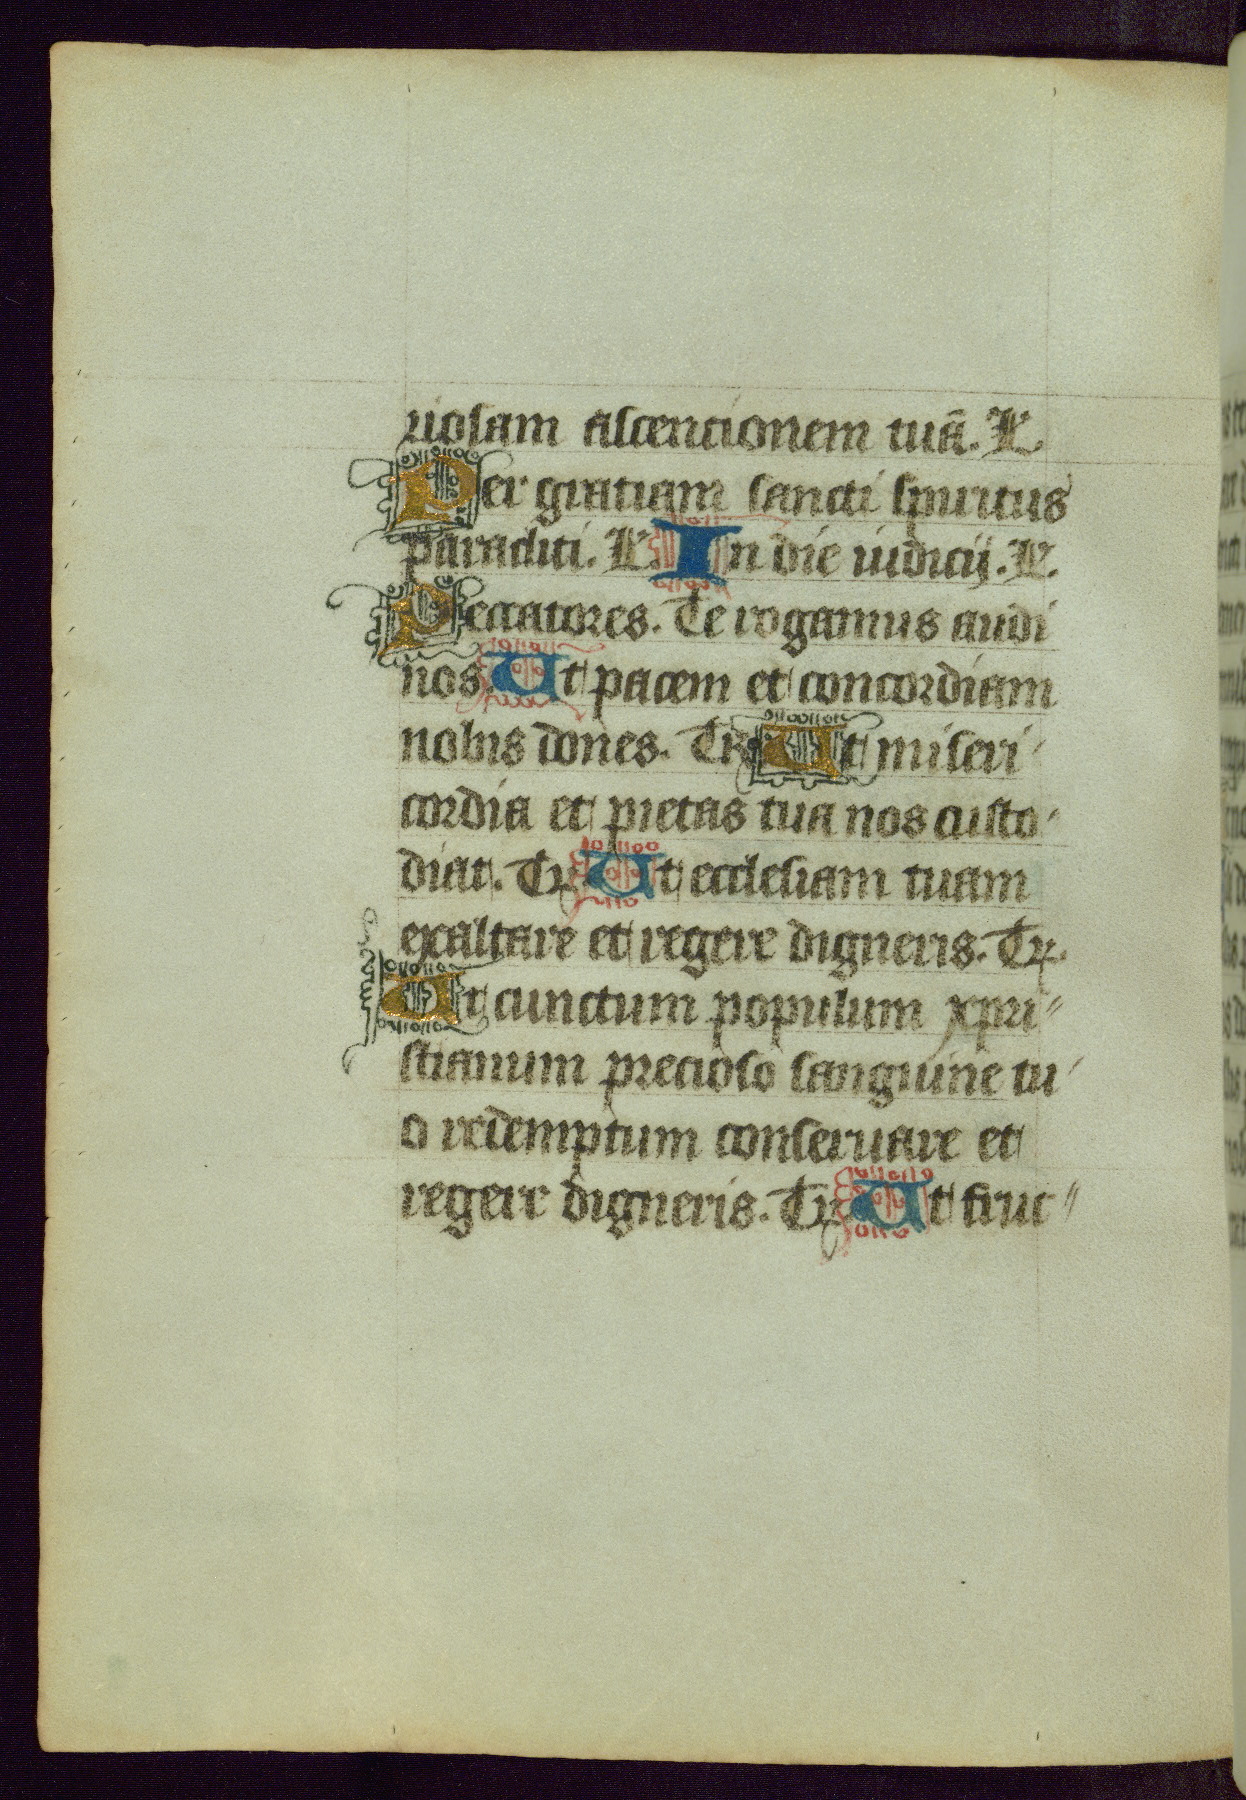 riosam ascentionem tuã. L
Per gratiam sancti spiritus
paracliti. L. In die iudicij. L.
Peccatores. Te rogamus audi
nos. Ut pacem et concordiam
nobis dones. Tr Ut miseri
cordia et pietas tua nos custo
diat. Tr Ut ecclesiam tuam
exaltare et regere digneris. Tr.
Ut cunctum populum xpri
stianum precioso sanguine tu
o redemptum conseruare et
regere digneris. Tr Ut fruc